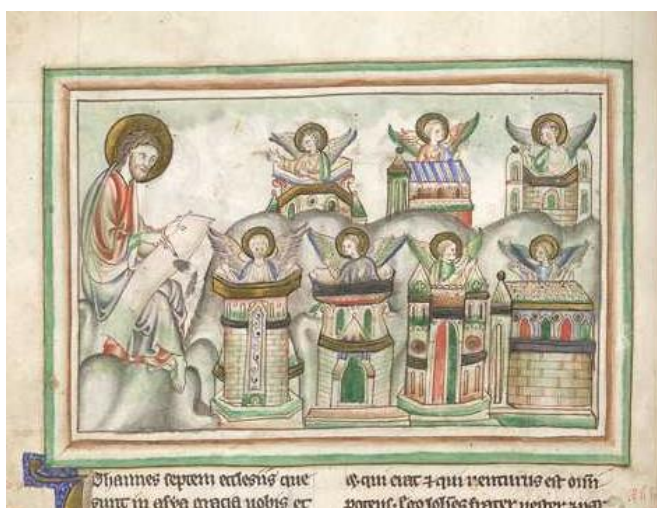 Johannes septem ecclesiis que
sunt in asya gracia uobis et
& qui erat & qui uenturus est omi
potens. Ego Johes frater uester &